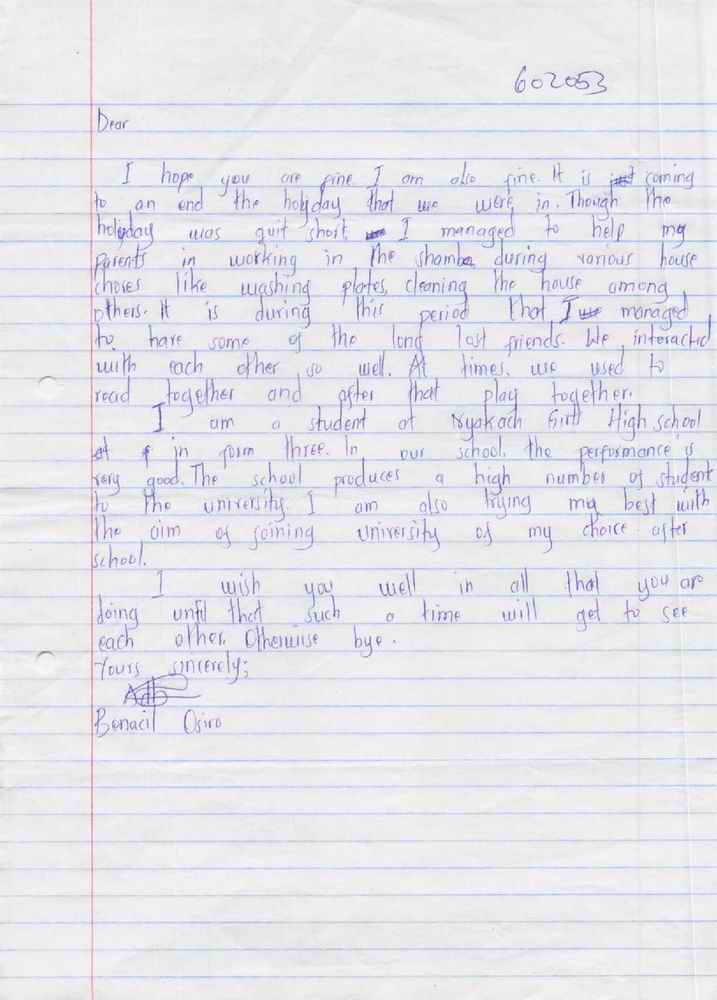 602053
Dear
I hope you are fine. I am also fine. It is coming
to an end the holyday that we were in. Though the
holyday was quit short I managed to help my
parents in working in the shamba during various house
chores like washing plates, cleaning the house among
others. It is during this period that I managed
to have some of the long lost friends. We interacted
with each other so well. At times, we used to
read together and after that play together.
I am a student at Nyakach Girls High school
in form three. In our school, the performance is
very good. The school produces a high number of student
to the university. I am also trying my best with
the aim of joining university of my choice after
school.
I wish you well in all that you are
doing until that such a time will get to see
each other. Otherwise bye.
Yours sincerely;
Benacil Osiro